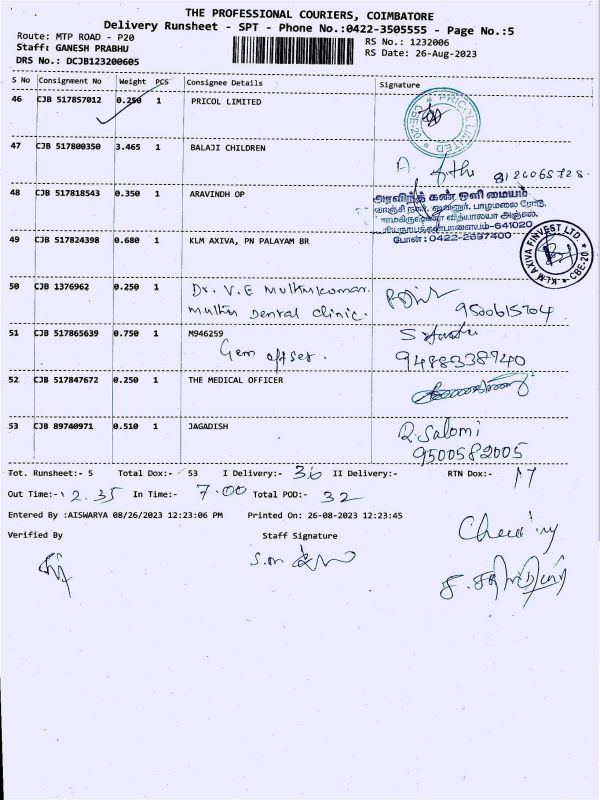 THE PROFESSIONAL COURIERS, COIMBATORE
Delivery Runsheet - SPT - Phone No.:0422-3505555 - Page No.:5
Route: MTP ROAD - P20
RS No.: 1232006
Staff: GANESH PRABHU
RS Date: 26-Aug-2023
DRS No.: DCJB123200605
S No Consignment No Weight PCS Consignee Details Signature
46 CJB 517857012 0.250 1 PRICOL LIMITED
PRICOL LIMITED CBE-20
47 CJB 517800350 3.465 1 BALAJI CHILDREN
8126065728
48 CJB 517818543 0.350 1 ARAVINDH OP
அரவிந்த் கண் ஒளி மையம்
போன் : 0422-2697400
49 CJB 517824398 0.680 1 KLM AXIVA, PN PALAYAM BR
KLM AXIVA FINVEST LTD. CBE-20
50 CJB 1376962 0.250 1 Dr. V.E Muthukumar.
Muthu Dental clinic.
9500615704
51 CJB 517865639 0.750 1 M946259
Gem offset.
9488338740
52 CJB 517847672 0.250 1 THE MEDICAL OFFICER
53 CJB 89740971 0.510 1 JAGADISH
R. Salomi
9500582005
Tot. Runsheet:- 5 Total Dox:- 53 I Delivery:- 36 II Delivery:- RTN Dox:- 17
Out Time:- 2.35 In Time:- 7.00 Total POD:- 32
Entered By :AISWARYA 08/26/2023 12:23:06 PM Printed On: 26-08-2023 12:23:45
Verified By Staff Signature